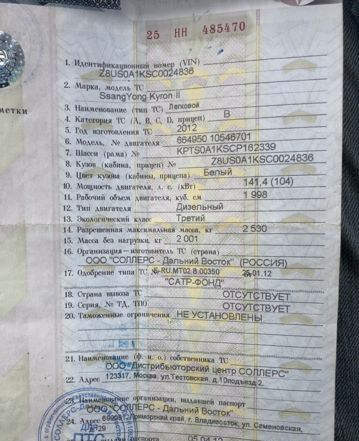 25 НН 485470
1. Идентификационный номер (VIN)
Z8US0A1KSC0024836
2. Марка, модель ТС
SsangYong Kyron II
метки
3. Наименование (тип ТС) Легковой
4. Категория ТС (А, В, С, D, прицеп) B
5. Год изготовления ТС 2012
6. Модель, № двигателя 664950 10546701
7. Шасси (рама) № KPTS0A1KSCP162339
8. Кузов (кабина, прицеп) № Z8US0A1KSC0024836
9. Цвет кузова (кабины, прицепа) Белый
10. Мощность двигателя, л. с. (кВт) 141,4 (104)
11. Рабочий объем двигателя, куб. см 1 998
12. Тип двигателя Дизельный
13. Экологический класс Третий
14. Разрешенная максимальная масса, кг 2 530
15. Масса без нагрузки, кг 2 001
16. Организация – изготовитель ТС (страна)
ООО "СОЛЛЕРС - Дальний Восток" (РОССИЯ)
17. Одобрение типа ТС № RU.MT02.B.00350 .01.12
"САТР-ФОНД"
18. Страна вывоза ТС ОТСУТСТВУЕТ
19. Серия, № ТД, ТПО ОТСУТСТВУЕТ
20. Таможенные ограничения НЕ УСТАНОВЛЕНЫ
21. Наименование (ф. и. о.) собственника ТС
ООО "Дистрибьюторский центр СОЛЛЕРС"
22. Адрес 123317, Москва, ул.Тестовская, д.10подъезд 2,
23. Наименование организации, выдавшей паспорт
ООО "СОЛЛЕРС - Дальний Восток"
24. Адрес Приморский край, г. Владивосток, ул. Семеновская,
паспорта 05.04.12